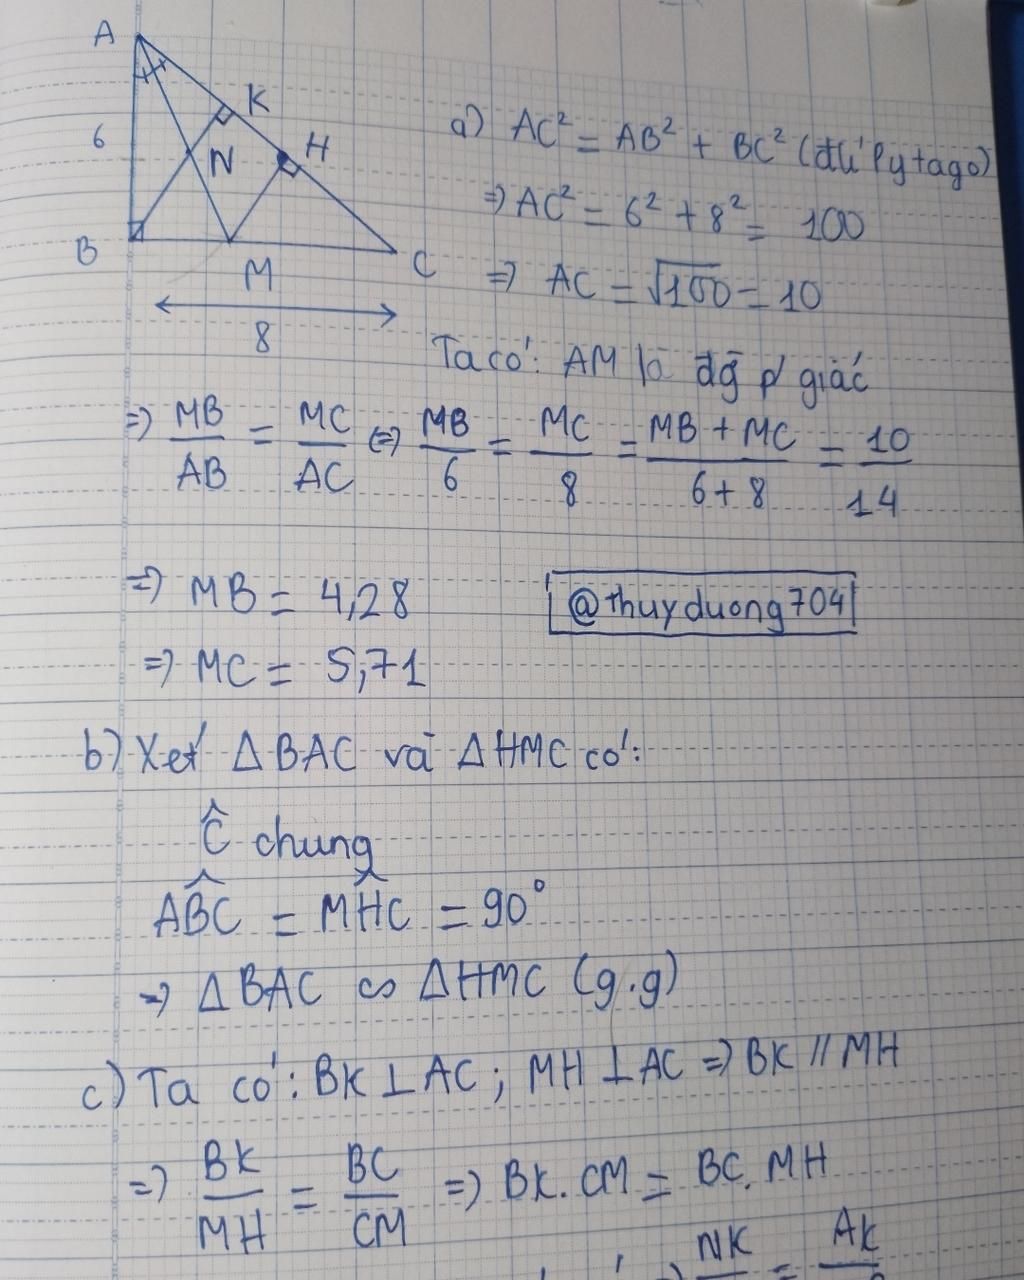 A
K
6
N
H
B
M
C
8
a) AC² = AB² + BC² (đlí Pytago)
⇒ AC² = 6² + 8² = 100
⇒ AC = √100 = 10
Ta có: AM là đg p/ giác
⇒ MB/AB = MC/AC ⇔ MB/6 = MC/8 = MB + MC/6 + 8 = 10/14
⇒ MB = 4,28
@thuyduong704
⇒ MC = 5,71
b) Xét ΔBAC và ΔHMC có:
Ĉ chung
AB̂C = MĤC = 90°
⇒ ΔBAC ∽ ΔHMC (g.g)
c) Ta có: BK ⊥ AC; MH ⊥ AC ⇒ BK // MH
⇒ BK/MH = BC/CM ⇒ BK. CM = BC. MH
NK = AK